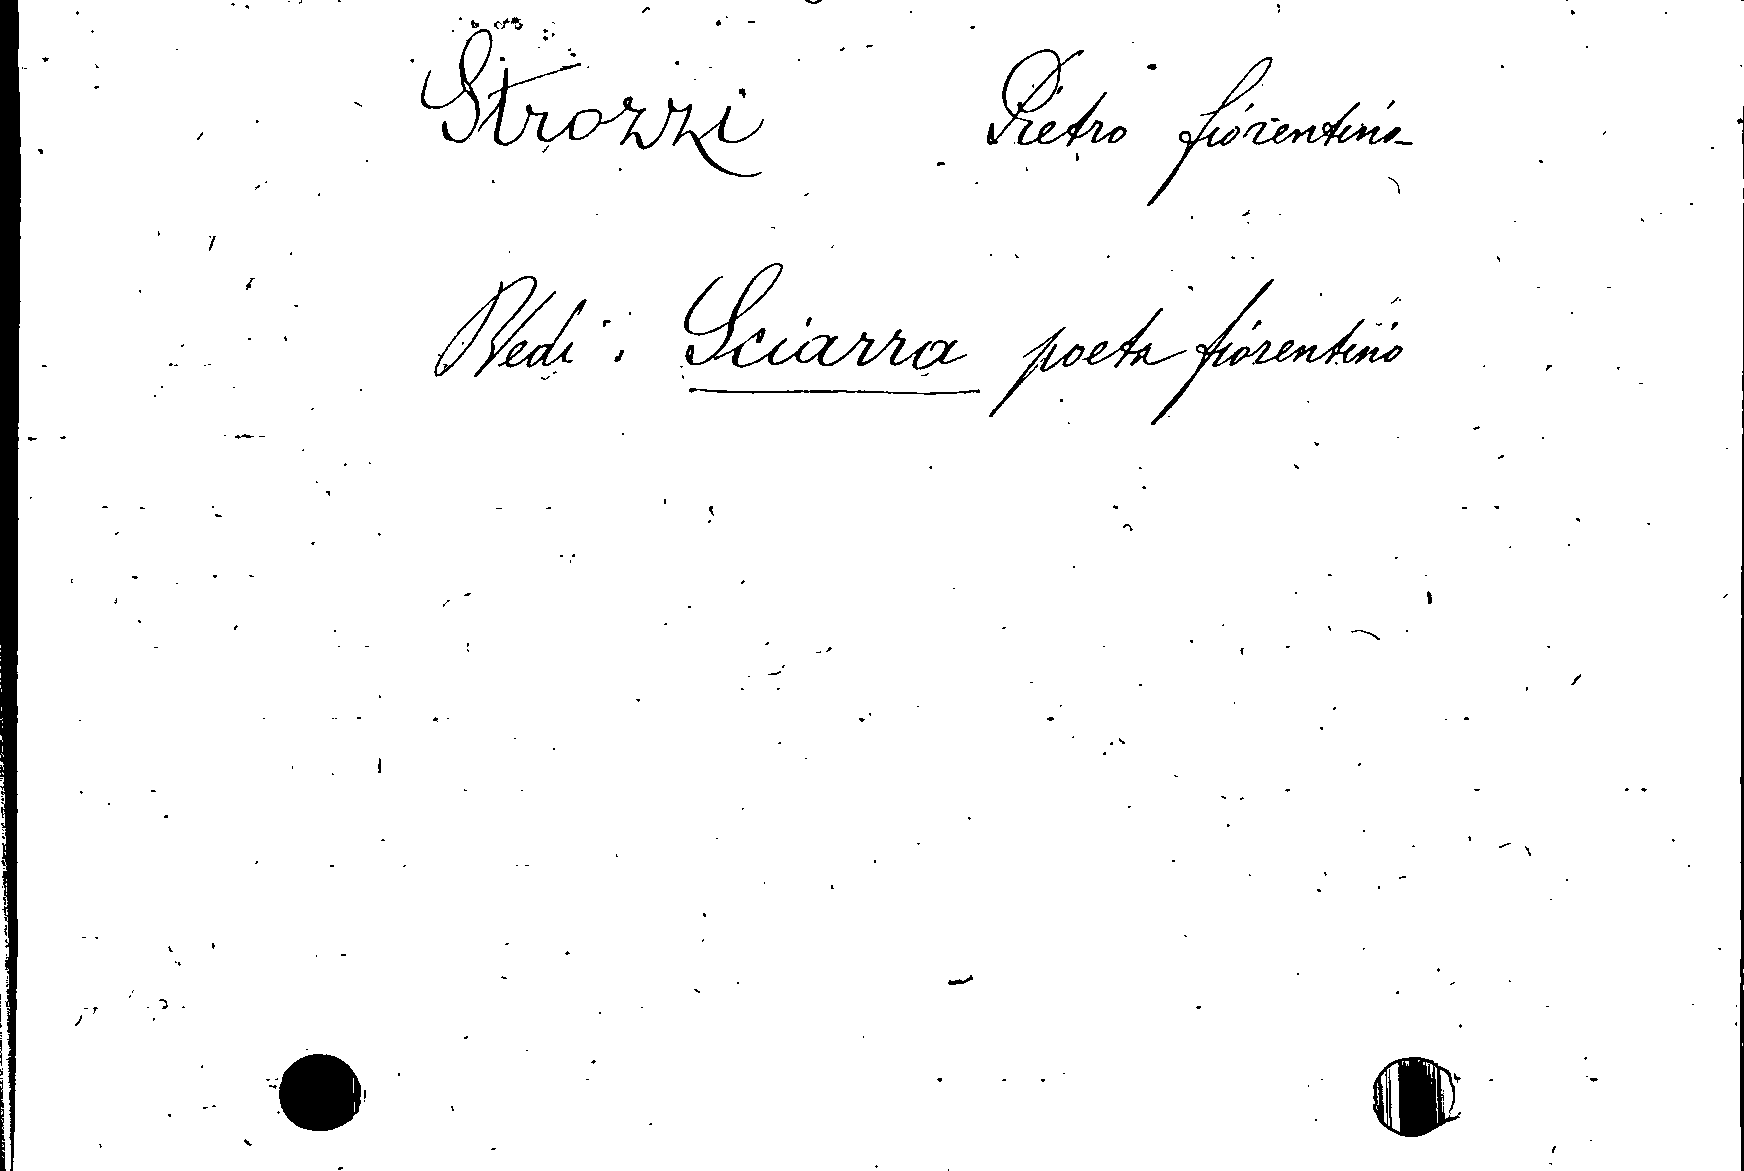 Strozzi Pietro fiorentino
Vedi: Sciarra poeta fiorentino